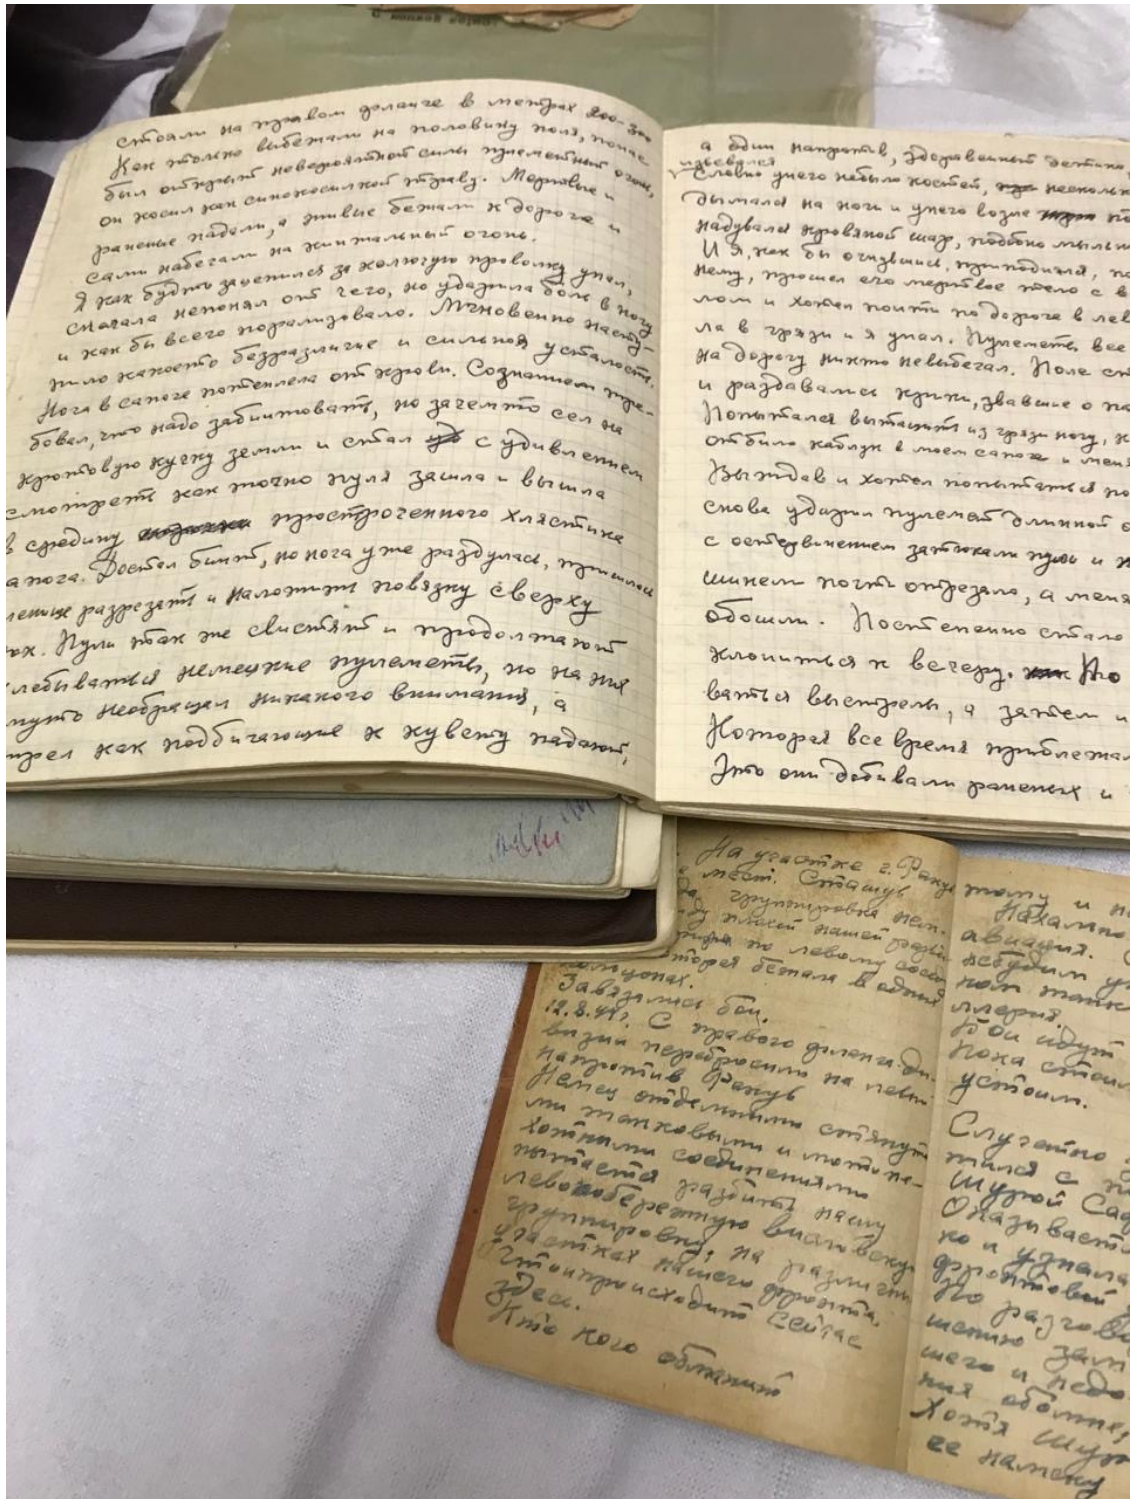 стояли на правом фланге в метрах 200-300
Как только выбежали на половину поля, по нас
был открыт невероятной силы пулеметный огонь,
он косил как сенокосилкой траву. Мертвые и
раненые падали, а живые бежали к дороге и
сами набегали на кинжальный огонь.
Я как будто зацепился за колючую проволку упал,
сначала непонял от чего, но ударила боль в ногу
и как бы всего порализовало. Мгновенно насту-
пило какоето безразличие и сильная усталость.
Нога в сапоге потеплела от крови. Сознанием тре-
бовал, что надо забинтовать, но зачемто сел на
кротовую кучку земли и стал с удивлением
смотреть как точно пуля зашла и вышла
в средину простроченного хлястика
сапога. Достал бинт, но нога уже раздулась, пришлось
разрезать и наложить повязку сверху
Пули так же свистят и продолжают
хлебываться немецкие пулеметы, но на них
необращал никакого внимания, а
как подбигающие к кувету падают,
а один напротив, здоравенный детина,
извевался
словно унего небыло костей, несколько
дымался на ноги и унего возле
надувался кровяной шар, подобно мыльно
И я, как бы очнувшись, приподнялся, по
нему, прошел его мертвое тело с в
лом и хотел поити по дороге в лев
ла в грязи и я упал. Пулеметы все
на дорогу никто невыбегал. Поле ст
и раздавались крики, звавшие о по
Попытался вытащить из грязи ногу, к
отбило каблук в моем сапоге и меня
Выждав и хотел попытаться по
снова ударил пулемет длинной о
с остервинением затюкали пули и п
шинели почти отрезало, а меня
обошли. Постепенно стало
клониться к вечеру. По
ваться выстрелы, а затем и
Которая все время приближал
Это они добивали раненых и
На участке г. Ракув
мест. Сташув
группировка нем.
плохой нашей разве
по левому сосе
которая бежала в одних
кальцонах.
Завязались бои.
12.8.44г. С правого фланга ди-
визии перебросили на левы
напротив Ракув
Немец отдельными стянут
ми танковыми и мотопе-
хотными соединениями
пытается разбить нашу
левобережную висловскую
группировку, на различн
участках нашего фронта.
Что происходит сейчас
здесь.
Кто кого обманит
тому и н
Нахально
авиация.
небудим у
ном танк
ллерия.
Бои идут
Пока стоим
устоим.
Случайно
тился с
Шурой Сад
Оказывает
ко и узнала
фронтовой
По разгово
шению зам
шего и недо
ния
Хотя Шур
ее намеку